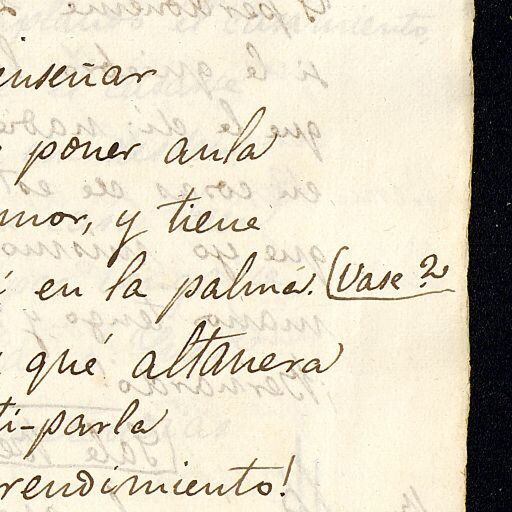 enseñar
poner aula
mor, y tiene
en la palma. (Vase
qué altanera
ti-parla
rendimiento!